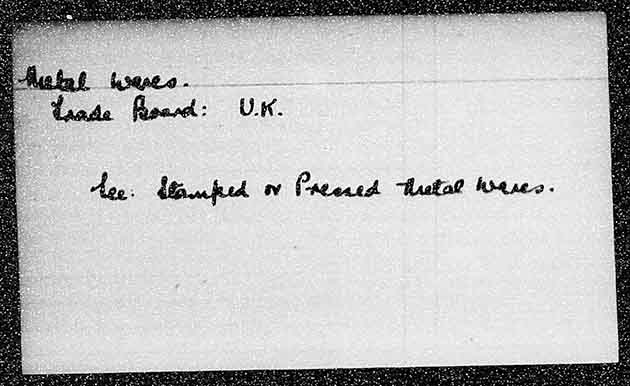 Metal Wares.
Trade Board: U.K.
See: Stamped or Pressed Metal Wares.